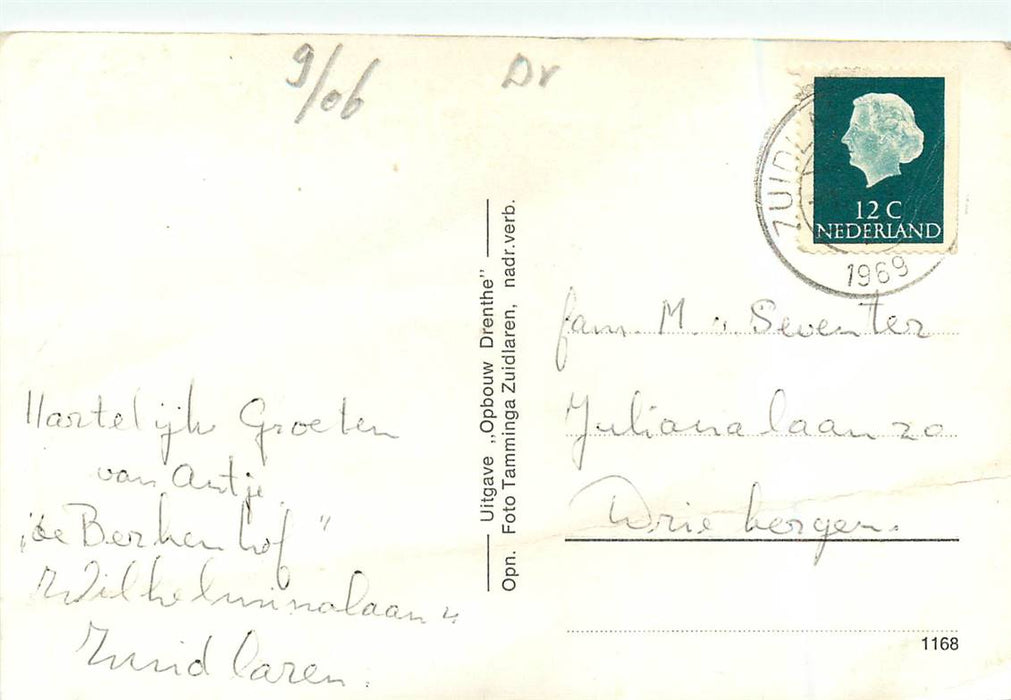 9/06
Dr
ZUIDL
12 C
NEDERLAND
1969
Hartelijk Groeten
van Antje
"de Berkenhof"
Wilhelminalaan
Zuidlaren.
Uitgave „Opbouw Drenthe"
Opn. Foto Tamminga Zuidlaren, nadr.verb.
fam. M. v. Seventer
Julianalaan 20
Driebergen.
1168